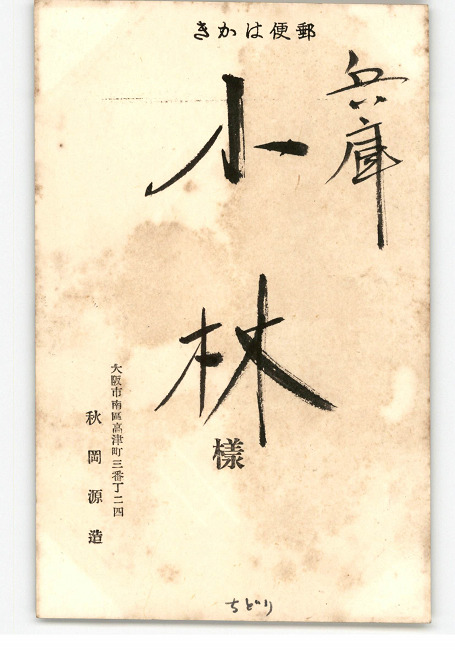 郵便はかき
兵庫
小林
様
大阪市南區高津町三番丁二四
秋岡源造
ちどり